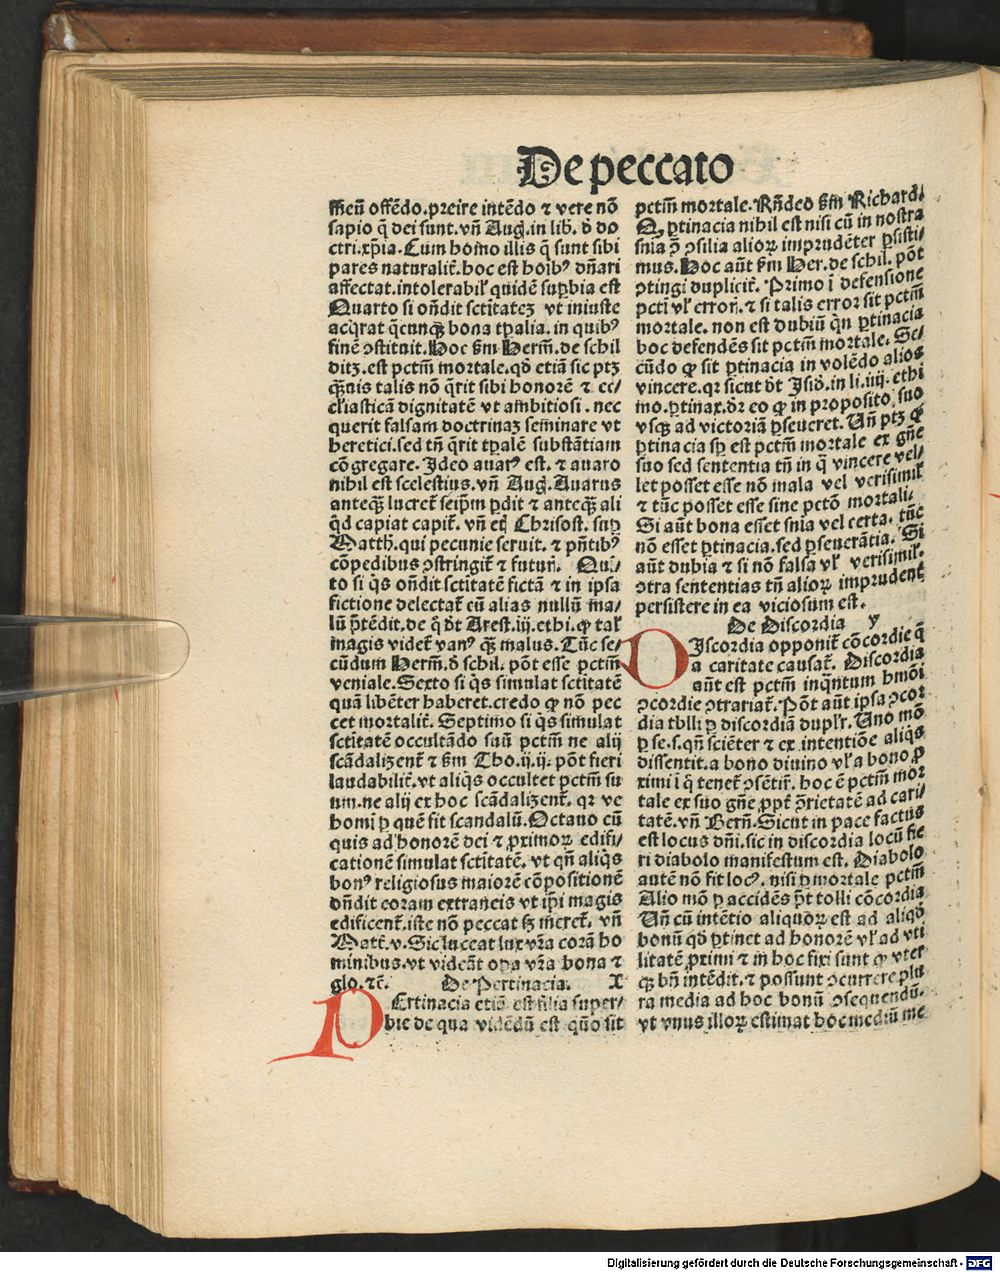 De peccato
meū offēdo. p̄eire intēdo ⁊ vere nō
sapio q̄ dei sunt. vn̄ Aug. in lib. d̄ do
ctri. xp̄ia. Cum homo illis q̄ sunt sibi
pares naturalit̄. hoc est hoībꝰ dn̄ari
affectat. intolerabil̛ quidē suꝑbia est
Quarto si on̄dit sctitatēȝ vt iniuste
acq̄rat q̄cunqȝ bona tꝑalia. in quibꝰ
finē ↄstituit. Hoc ẜm Herm̄. de schil
ditȝ. est pctm̄ mortale. qd̄ etiā sic ptȝ
qȝuis talis nō q̄rit sibi honorē ⁊ ec/
cl̛iasticā dignitatē vt ambitiosi. nec
querit falsam doctrinaȝ seminare vt
heretici. sed tn̄ q̄rit tꝑalē substātiam
cōgregare. Ideo auarꝰ est. ⁊ auaro
nihil est scelestius. vn̄ Aug. Auarus
anteqȝ lucret̄ seip̄m ꝑdit ⁊ anteqȝ ali
q̇d capiat capit̄. vn̄ etī Chrisost. suꝑ
Matth. qui pecunie seruit. ⁊ pn̄tibꝰ
cōpedibus ↄstringit̄ ⁊ futur̄. Quī/
to si q̇s on̄dit sctitatē fictā ⁊ in ipsa
fictione delectat̄ cū alias nullū ma/
lū p̄tēdit. de q̄ dt̄ Arest. iij. ethi. ꝙ tal̛
magis videt̄ vanꝰ qȝ malus. Tūc se/
cūdum Herm̄. d̄ schil. pōt esse pctm̄
veniale. Sexto si q̇s simulat sctitatē
quā libēter haberet. credo ꝙ nō pec
cet mortalit̄. Septimo si q̇s simulat
sctitatē occultādo suū pctm̄ ne alij
scādaliȝent̄ ⁊ ẜm Tho. ij. ij. pōt fieri
laudabilit̄. vt aliq̇s occultet pctm̄ su
um. ne alij ex hoc scādaliȝent̄. qꝛ ve
homī ꝑ quē fit scandalū. Octauo cū
quis ad honorē dei ⁊ ꝓximoꝝ edifi/
cationē simulat sctitatē. vt qn̄ aliq̇s
bonꝰ religiosus maiorē cōpositionē
on̄dit coram extraneis vt ip̄i magis
edificent̄. iste nō peccat sȝ meret̄. vn̄
Matt̄. v. Sic luceat lux vr̄a corā ho
minibus. vt videāt oꝑa vr̄a bona ⁊
glo. ⁊c̄. De Pertinacia. X
PErtinacia etiā est filia super/
bie de qua vidēdū est quō sit
pctm̄ mortale. Rn̄deo ẜm Richard.
Q ꝑtinacia nihil est nisi cū in nostra
sn̄ia p̄ ↄsilia alioꝝ imprudēter ꝑsisti/
mus. Hoc aūt ẜm Her. de schil. pōt
ↄtingi duplicit̄. Primo ī defensione
pctī vl̛ error̄. ⁊ si talis error sit pctm̄
mortale. non est dubiū qn̄ ꝑtinacia
hoc defendēs sit pctm̄ mortale. Se/
cūdo ꝙ sit ꝑtinacia in volēdo alios
vincere. qꝛ sicut dt̄ Isid̄. in li. iiij. ethi
mo. ꝑtinax. dr̄ eo ꝙ in proposito suo
vsqȝ ad victoriā ꝑseueret. Vn̄ ptȝ ꝙ
ꝑtinacia sꝑ est pctm̄ mortale ex gn̄e
suo sed sententia tn̄ in q̄ vincere vel/
let posset esse nō mala vel verisimil̛
⁊ tūc posset esse sine pctō mortali.
Si aūt bona esset sn̄ia vel certa. tūc
nō esset ꝑtinacia. sed ꝑseuerātia. Si
aūt dubia ⁊ si nō falsa vl̛ verisimil̛.
ↄtra sententias tn̄ alioꝝ imprudent̄
persistere in ea viciosum est.
De Discordia y
DIscordia opponit̄ cōcordie q̄
a caritate causat̄. Discordia
aūt est pctm̄ inq̄ntum hmōi
ↄcordie ↄtrariat̄. Pōt aūt ipsa ↄcor
dia tolli ꝑ discordiā dupl̛r. Uno mō
ꝑ se. s. qn̄ sciēter ⁊ ex intentiōe aliq̇s
dissentit. a bono diuino vl̛ a bono ꝓ
ximi ī q̇ tenet̄ ↄsētir̄. hoc ē pctm̄ mor
tale ex suo gn̄e ꝓpt̄ ↄ̄rietatē ad cari/
tatē. vn̄ Bern̄. Sicut in pace factus
est locus dn̄i. sic in discordia locū fie
ri diabolo manifestum est. Diabolo
autē nō fit locꝰ. nisi ꝑ mortale pctm̄
Alio mō ꝑ accidēs p̄t tolli cōcordia
Vn̄ cū intētio aliquoꝝ est ad aliqd̄
bonū qd̄ ꝑtinet ad honorē vl̛ ad vti
litatē ꝓximi ⁊ in hoc fixi sunt ꝙ vter
qȝ bn̄ intēdit. ⁊ possunt ↄcurrere plu
ra media ad hoc bonū ↄsequendū.
vt vnus illoꝝ estimat hoc mediū me
Digitalisierung gefördert durch die Deutsche Forschungsgemeinschaft - DFG